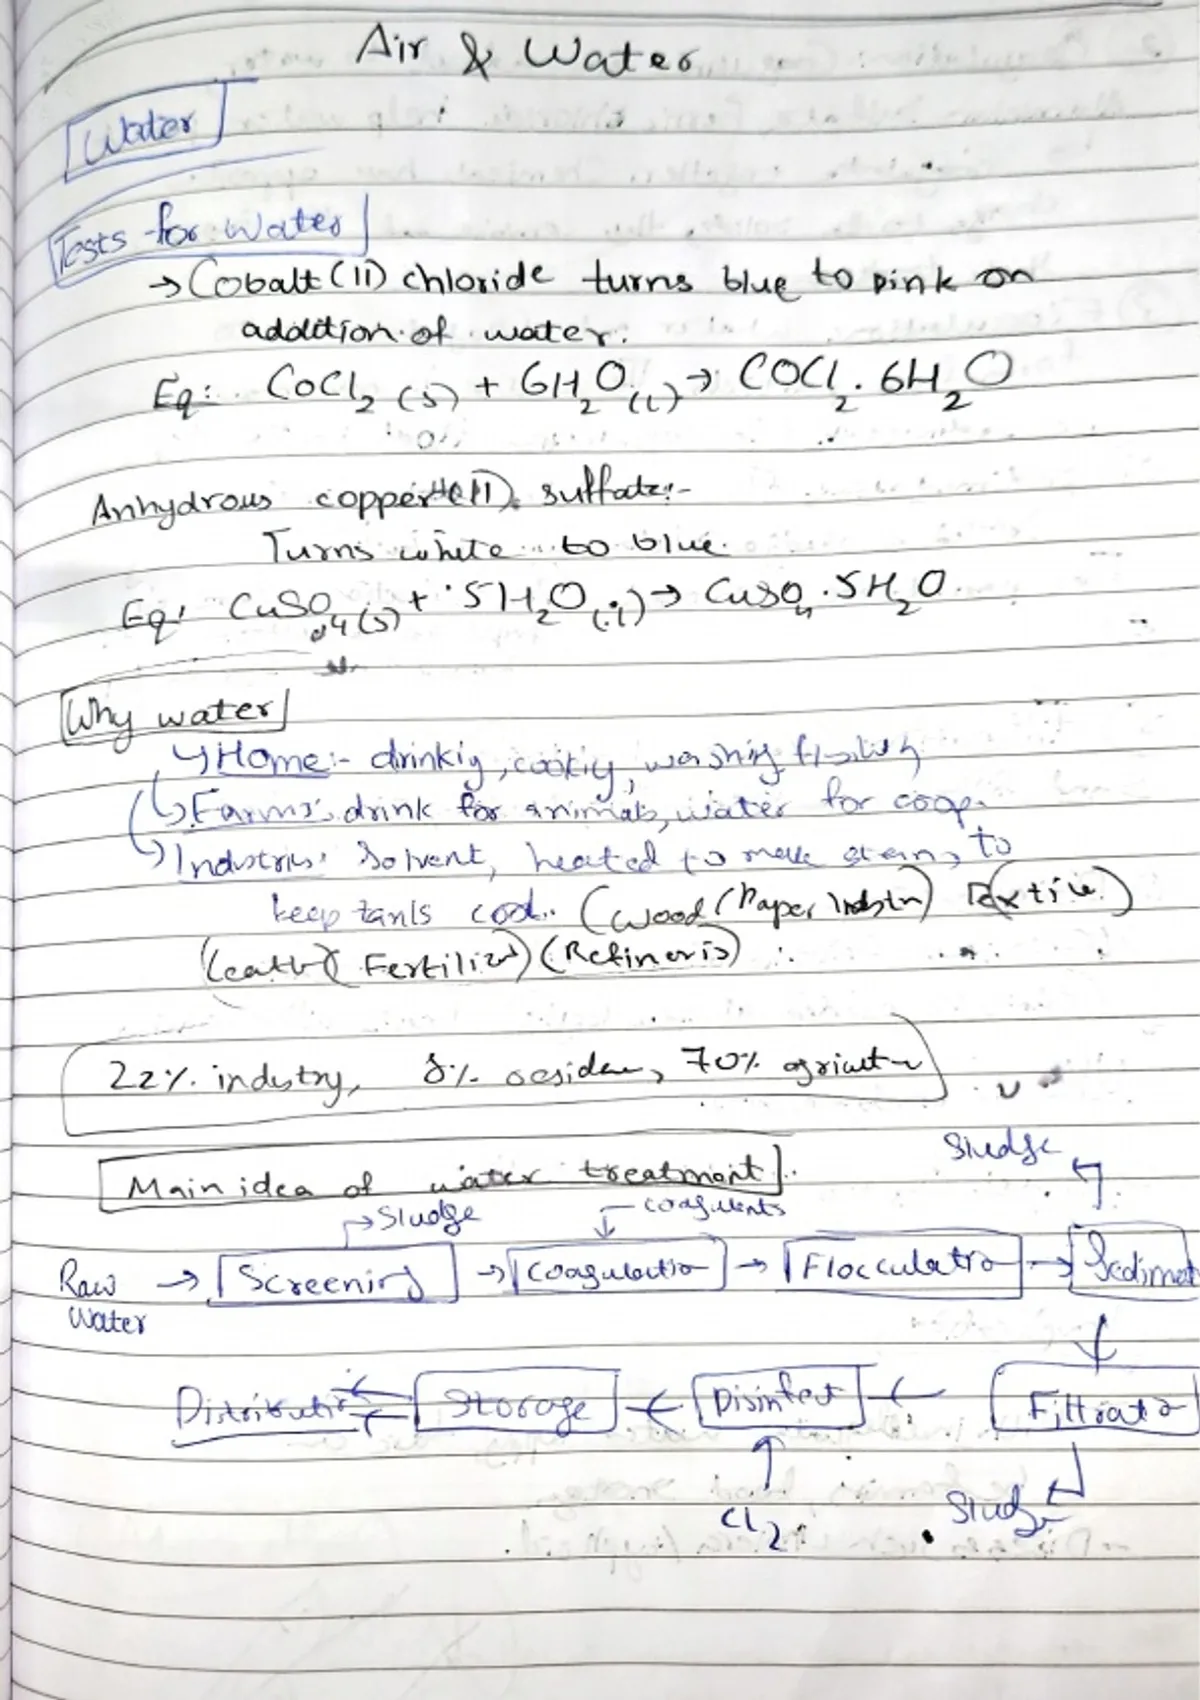 Air & Water
Water
Tests for water
→ Cobalt (II) chloride turns blue to pink on
addition of water.
Eq: CoCl₂ (s) + 6H₂O (l) → COCl₂. 6H₂O
Anhydrous copper (II) sulfate:-
Turns white to blue.
Eq: CuSO₄(s) + 5H₂O (l) → CuSO₄.5H₂O
Why water
↳ Home:- drinkig, cookig, washing
↳ Farms: drink for animals, water for
↳ Industries: Solvent, heated to make steam, to
keep tanks cool. (Wood / Paper Industry) Textile)
(Leather) (Fertilizer) (Refineris)
22% industry, 8% residen, 70% agricultur
Main idea of water treatment
Sludge
→ Sludge coagulants
Raw → Screening → Coagulation → Flocculatio → Sediment
Water
Distribution ← Storage ← Disinfect ← Filtratio
Cl₂ Sludge